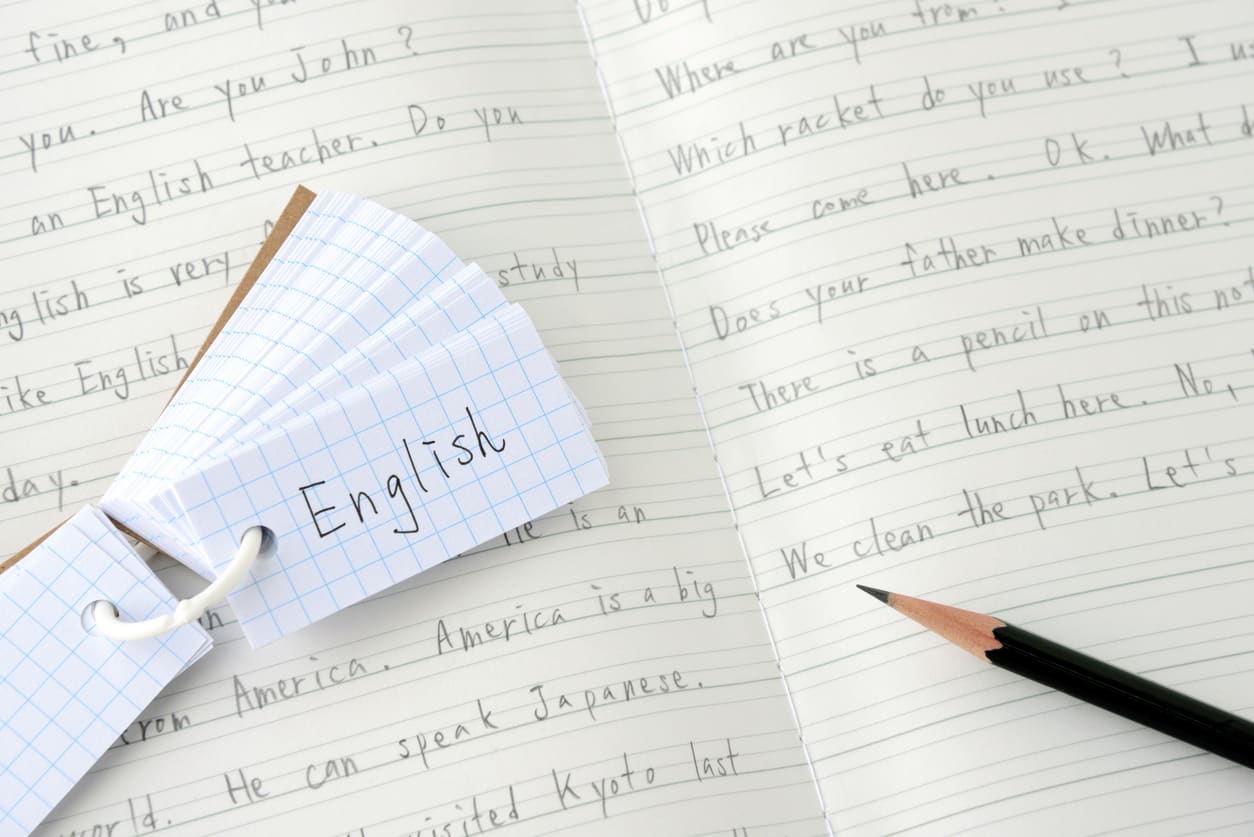 fine, and
you. Are you John?
an English teacher. Do you
English is very
study
like English
day.
He is an
from America. America is a big
world. He can speak Japanese.
visited Kyoto last
English
Do
Where are you from?
Which racket do you use? I
Please come here. Ok. What
Does your father make dinner?
There is a pencil on this
Let's eat lunch here. No,
We clean the park. Let's